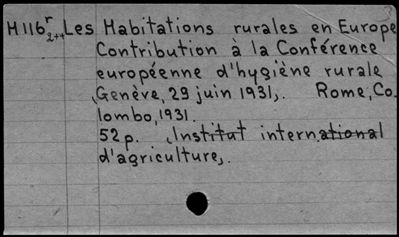 H116r 2++ Les Habitations rurales en Europe
Contribution à la Conférence
européenne d'hygiène rurale
(Genève, 29 juin 1931). Rome, Co.
lombo, 1931.
52p. (Institut international
d'agriculture).